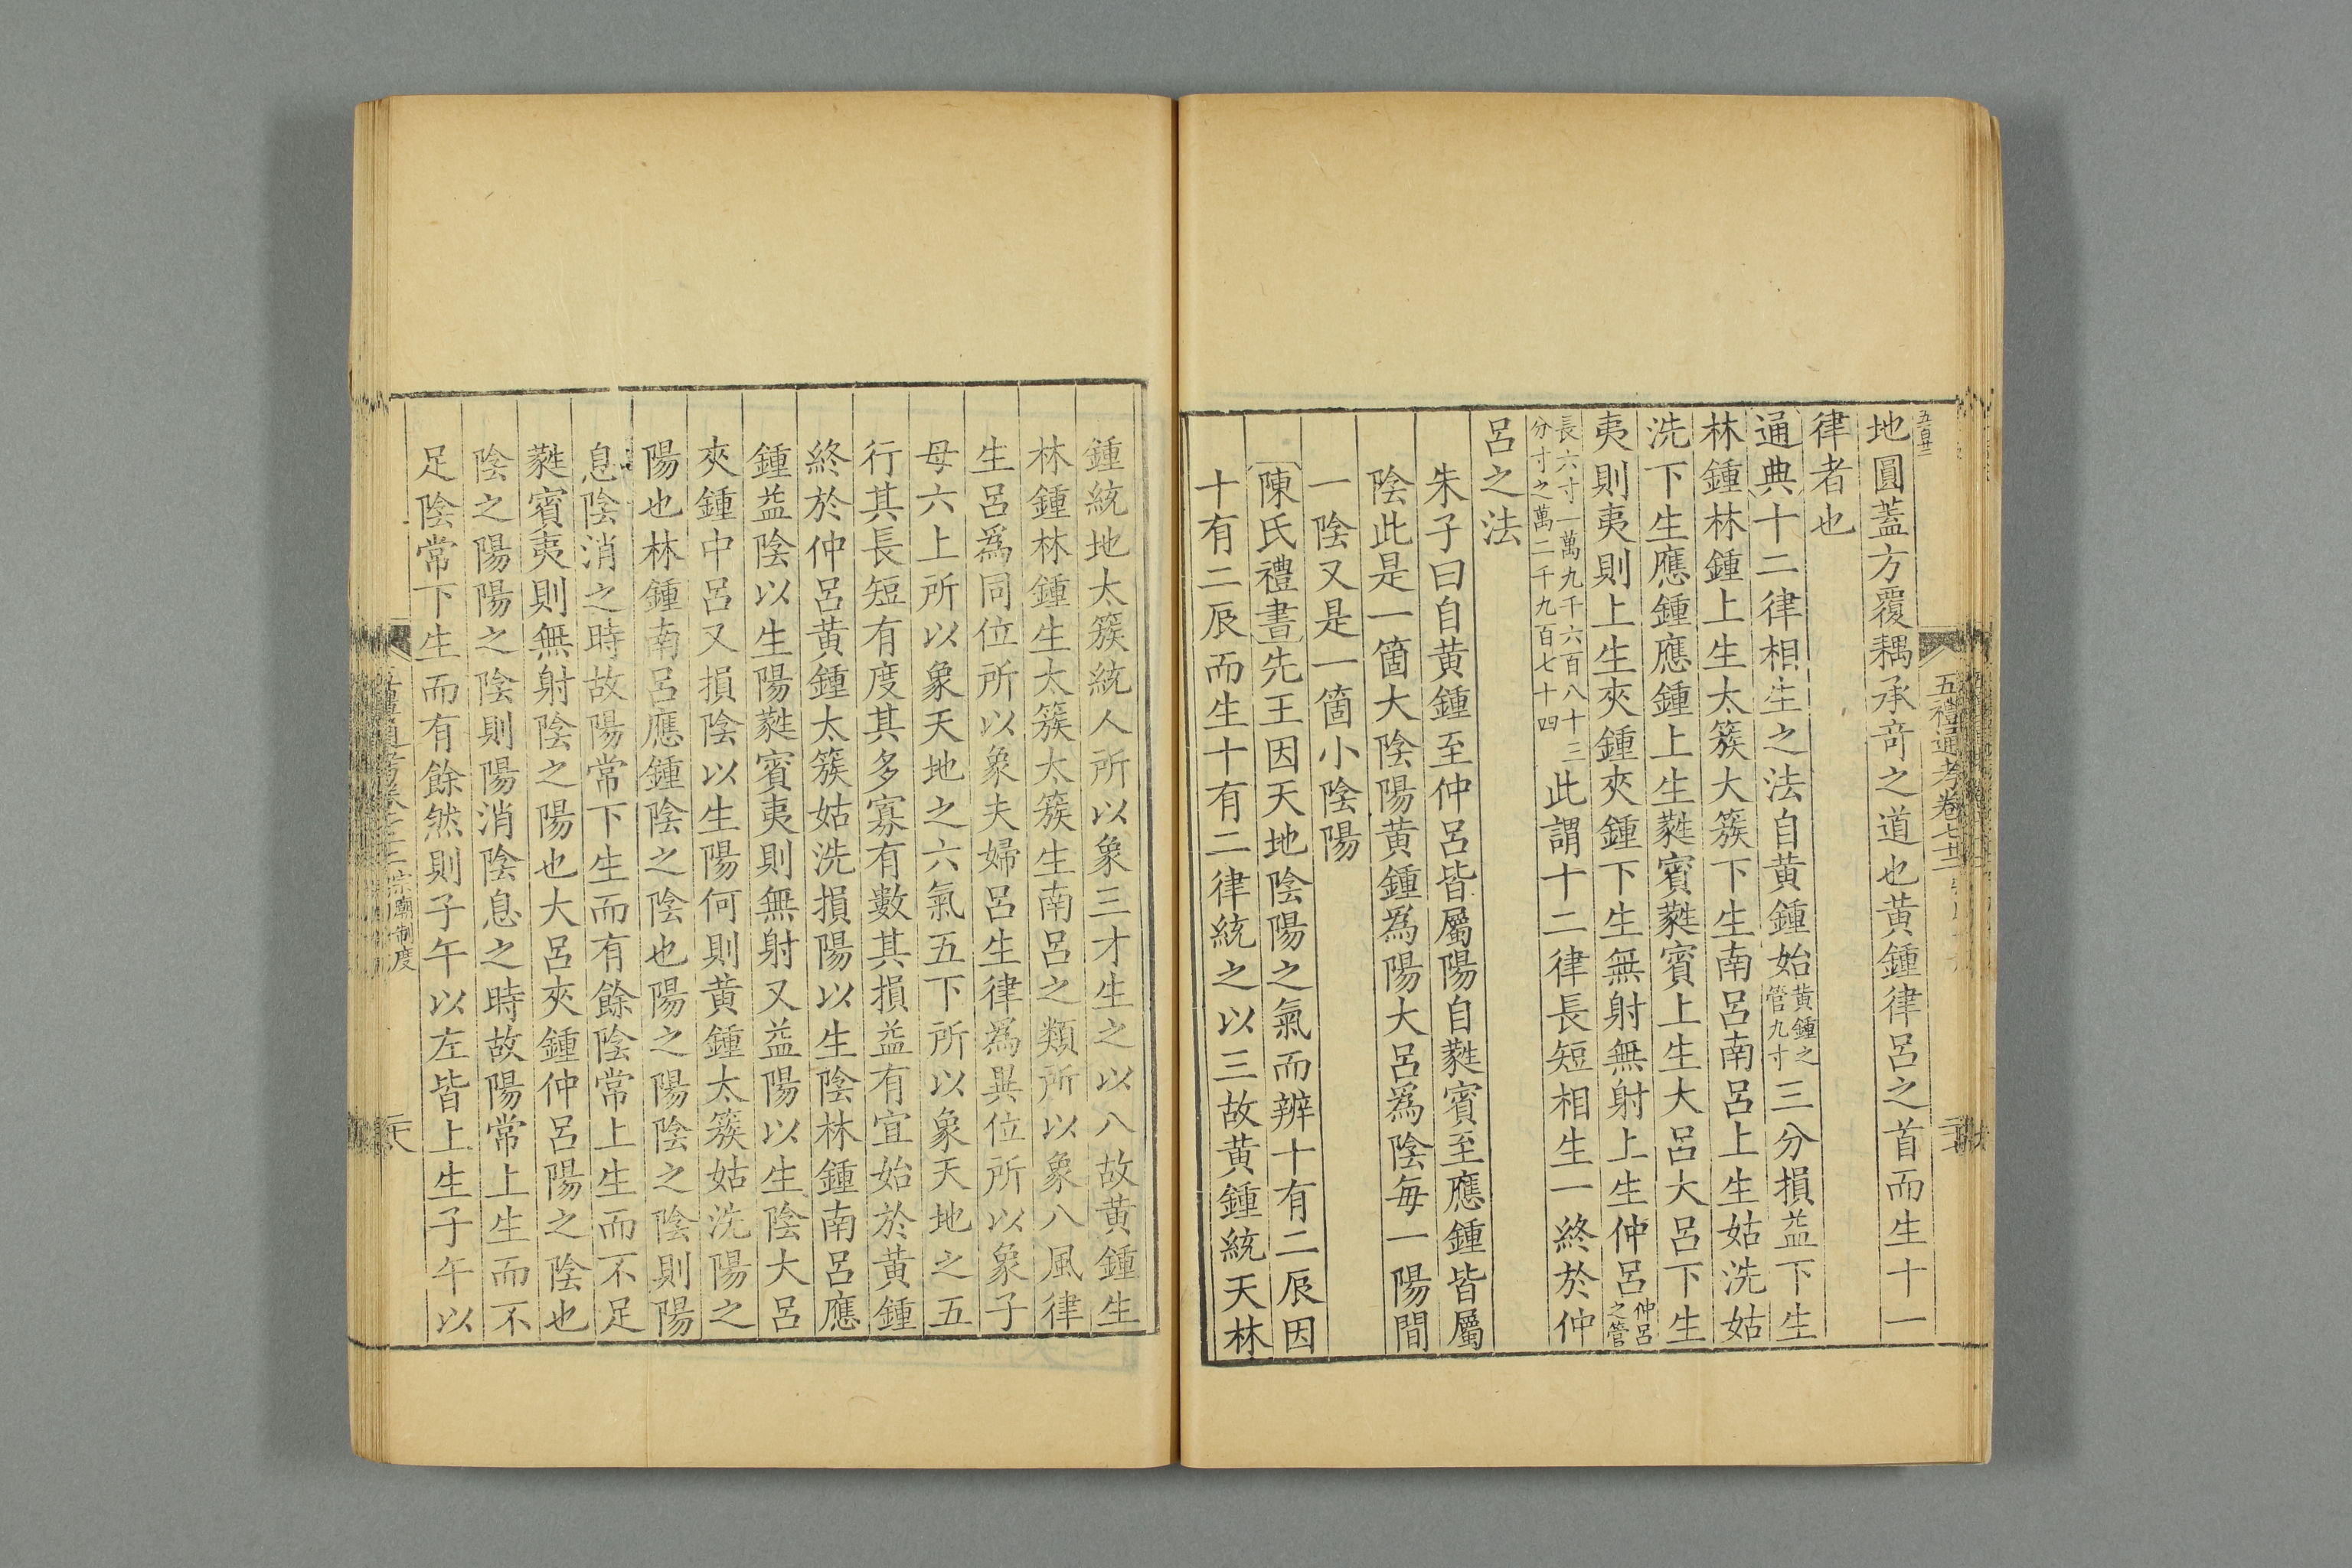 五百廿二
地圓蓋方覆耦承奇之道也黃鍾律呂之首而生十一
律者也
通典十二律相生之法自黃鍾始黃鍾之管九寸三分損益下生
林鍾林鍾上生太簇大簇下生南呂南呂上生姑洗姑
洗下生應鍾應鍾上生蕤賓蕤賓上生大呂大呂下生
夷則夷則上生夾鍾夾鍾下生無射無射上生仲呂仲呂之管
長六寸一萬九千六百八十三分寸之萬二千九百七十四此謂十二律長短相生一終於仲
呂之法
朱子曰自黃鍾至仲呂皆屬陽自蕤賓至應鍾皆屬
陰此是一箇大陰陽黃鍾爲陽大呂爲陰每一陽間
一陰又是一箇小陰陽
陳氏禮書先王因天地陰陽之氣而辨十有二辰因
十有二辰而生十有二律統之以三故黃鍾統天林
鍾統地太簇統人所以象三才生之以八故黃鍾生
林鍾林鍾生太簇太簇生南呂之類所以象八風律
生呂爲同位所以象夫婦呂生律爲異位所以象子
母六上所以象天地之六氣五下所以象天地之五
行其長短有度其多寡有數其損益有宜始於黃鍾
終於仲呂黃鍾太簇姑洗損陽以生陰林鍾南呂應
鍾益陰以生陽蕤賓夷則無射又益陽以生陰大呂
夾鍾中呂又損陰以生陽何則黃鍾太簇姑洗陽之
陽也林鍾南呂應鍾陰之陰也陽之陽陰之陰則陽
息陰消之時故陽常下生而有餘陰常上生而不足
蕤賓夷則無射陰之陽也大呂夾鍾仲呂陽之陰也
陰之陽陽之陰則陽消陰息之時故陽常上生而不
足陰常下生而有餘然則子午以左皆上生子午以
五禮通考卷七十二
宗廟制度